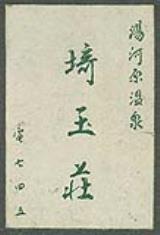 湯河原温泉
埼玉荘
電七四五